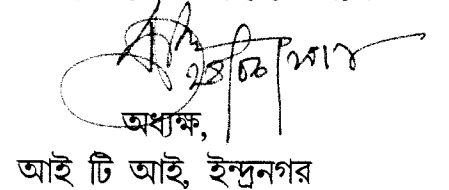 অধ্যক্ষ,
আই টি আই, ইন্দ্রনগর